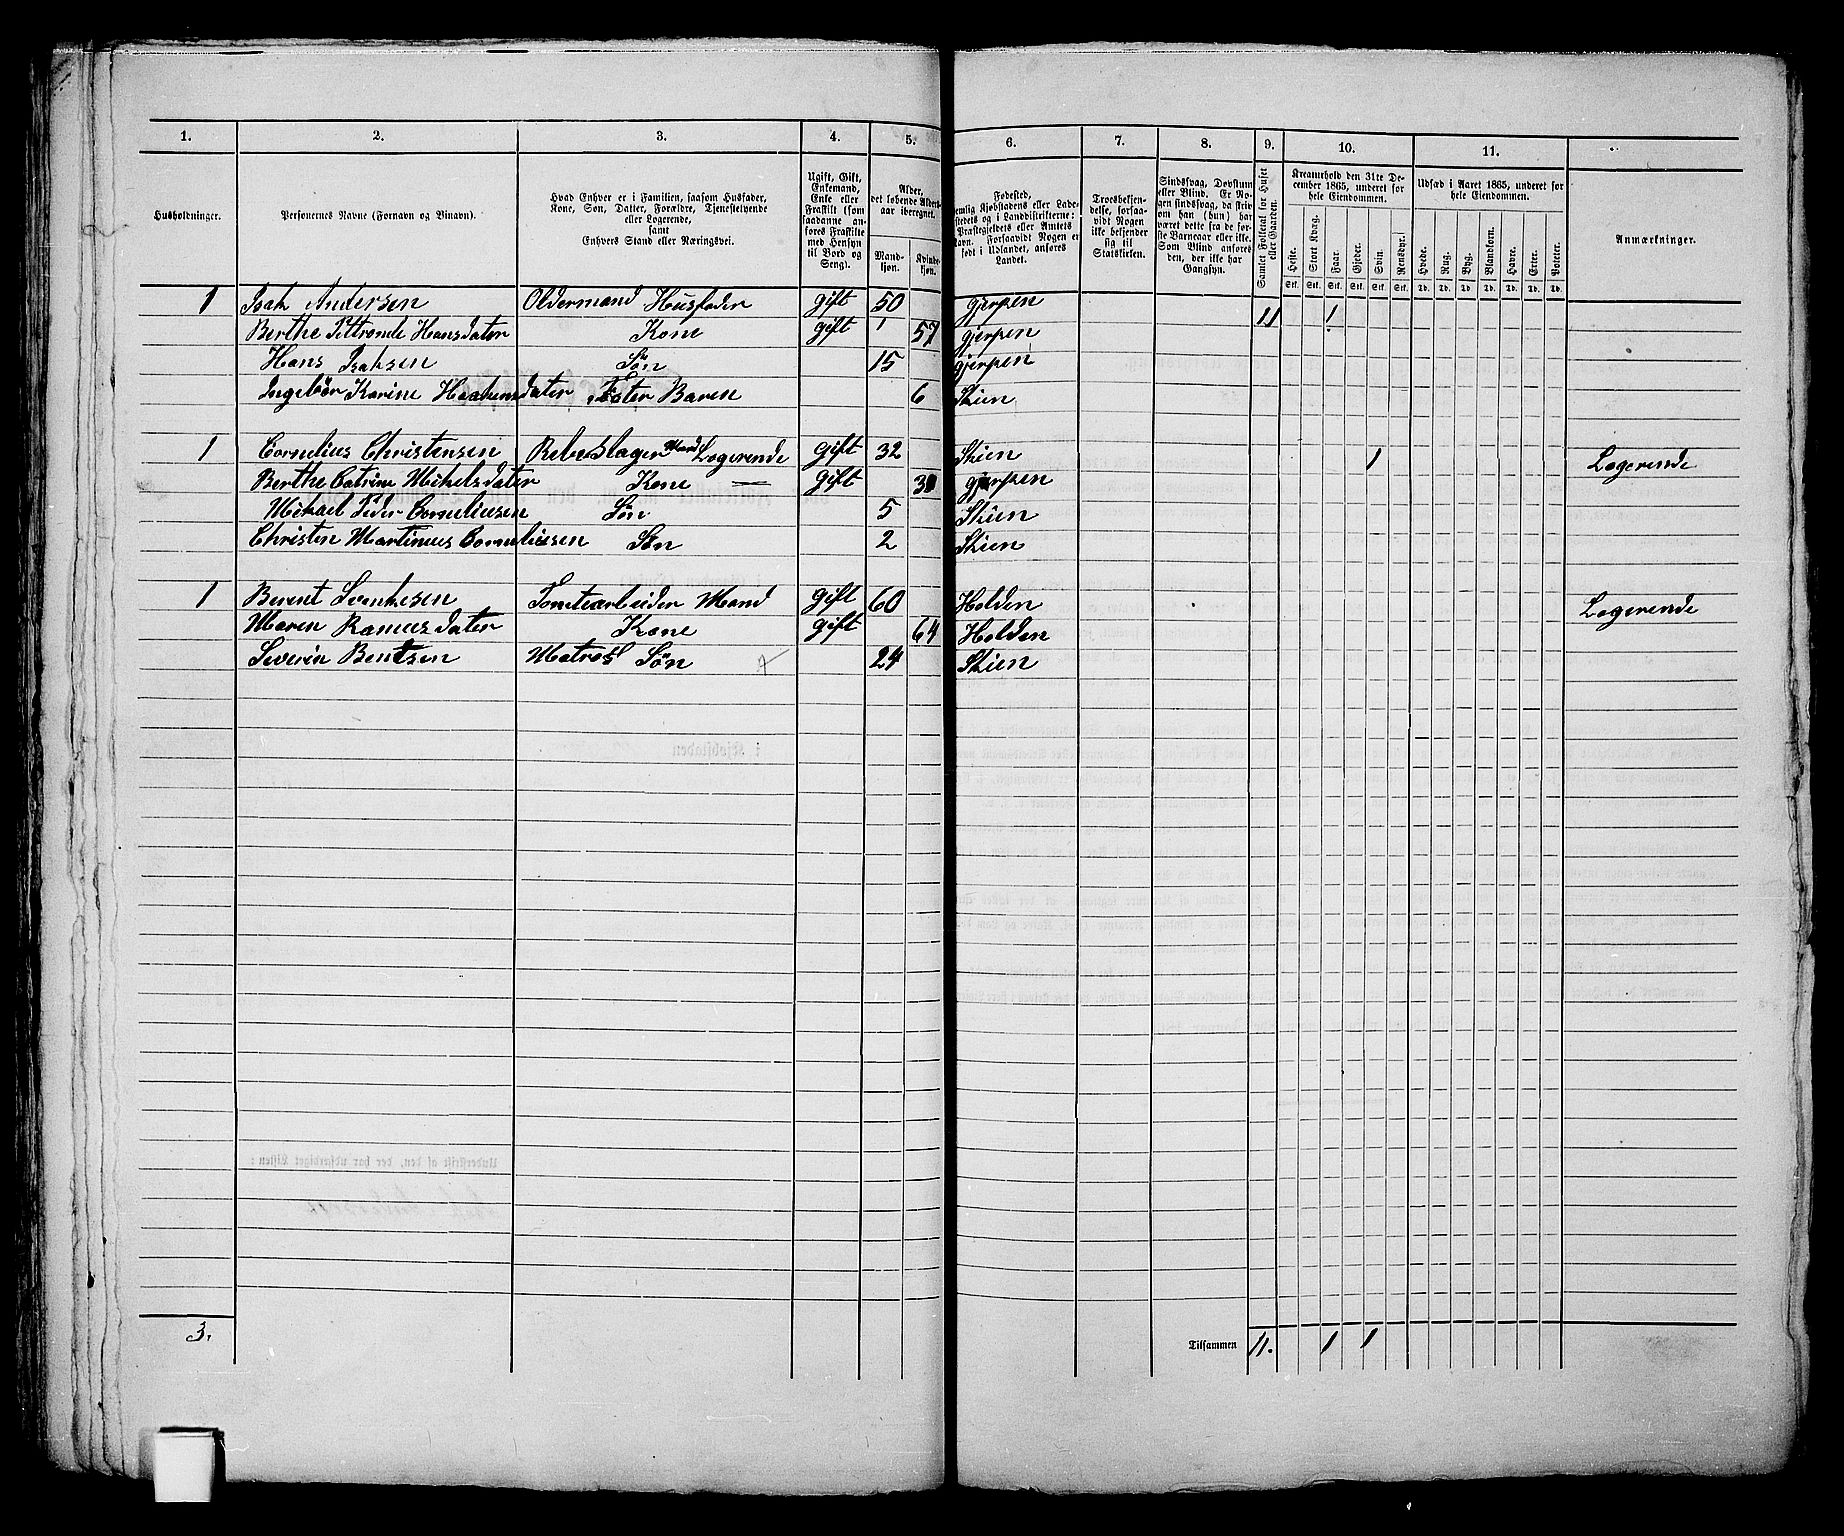 1. 2. 3. 4. 5. 6. 7. 8. 9. 10. 11.
Husholdninger.
Personernes Navne (Fornavn og Binavn).
Hvad Enhver er i Familien, saasom Husfader,
Kone, Søn, Datter, Forældre, Tjenestetyende
eller Logerende,
samt
Enhvers Stand eller Næringsvei.
Ugift, Gift,
Enkemand,
Enke eller
Fraskilt (som
saadanne anføres
Fraskilte
med Hensyn
til Bord og
Seng).
Alder,
det løbende Alders-
aar iberegnet.
Mand-
kjøn.
Kvinde-
kjøn.
Fødested,
nemlig Kjøbstadens eller Lade-
stedets og i Landdistrikterne:
Præstegjeldets eller Amtets
Navn. Forsaavidt Nogen er
født i Udlandet, anføres
Landet.
Troesbekjen-
delse, forsaa-
vidt Nogen
ikke bekjender
sig til
Statskirken.
Sindssvag, Døvstum
eller Blind. Er No-
gen sindssvag, da skriv
om han (hun) har
været dette fra de før-
ste Barneaar eller ikke.
Som Blind anføres
den, der ikke har
Gangsyn.
Samlet Folketal for Huset
eller Gaarden.
Kreaturhold den 31te De-
cember 1865, underet for
hele Eiendommen.
Heste. Stort Kvæg. Faar. Gjeder. Svin. Rensdyr.
Stk. Stk. Stk. Stk. Stk. Stk.
Udsæd i Aaret 1865, underet for
hele Eiendommen.
Hvede. Rug. Byg. Blandkorn. Havre. Erter. Poteter.
Td. Td. Td. Td. Td. Td. Td.
Anmærkninger.
1 Isak Andersen Oldermand Husfader gift 50 gjerpen 11 1
Berthe Pettronde Hansdater Kone gift 57 gjerpen
Hans Isaksen Søn 15 gjerpen
Ingebor Karine Haakensdater Foster Baren 6 Skien
1 Cornelius Christensen Rebeslager Mand Logerende gift 32 Skien 1 Logerende
Berthe Catrine Mikelsdater Kone — gift gjerpen
Mikael Peder Corneliusen Søn 5 Skien
Christen Martinius Corneliusen Søn 2 Skien
1 Berent Svenkesen Tomtearbeider Mand gift 60 Holden Logerende
Maren Rasmusdater Kone gift 64 Holden
Severin Bentsen Matros Søn 24 Skien
3.
Tilsammen 11. 1 1